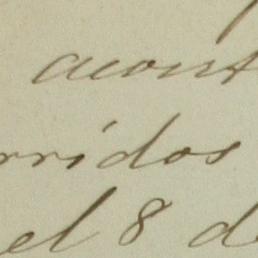 acont
rridos
el 8 de